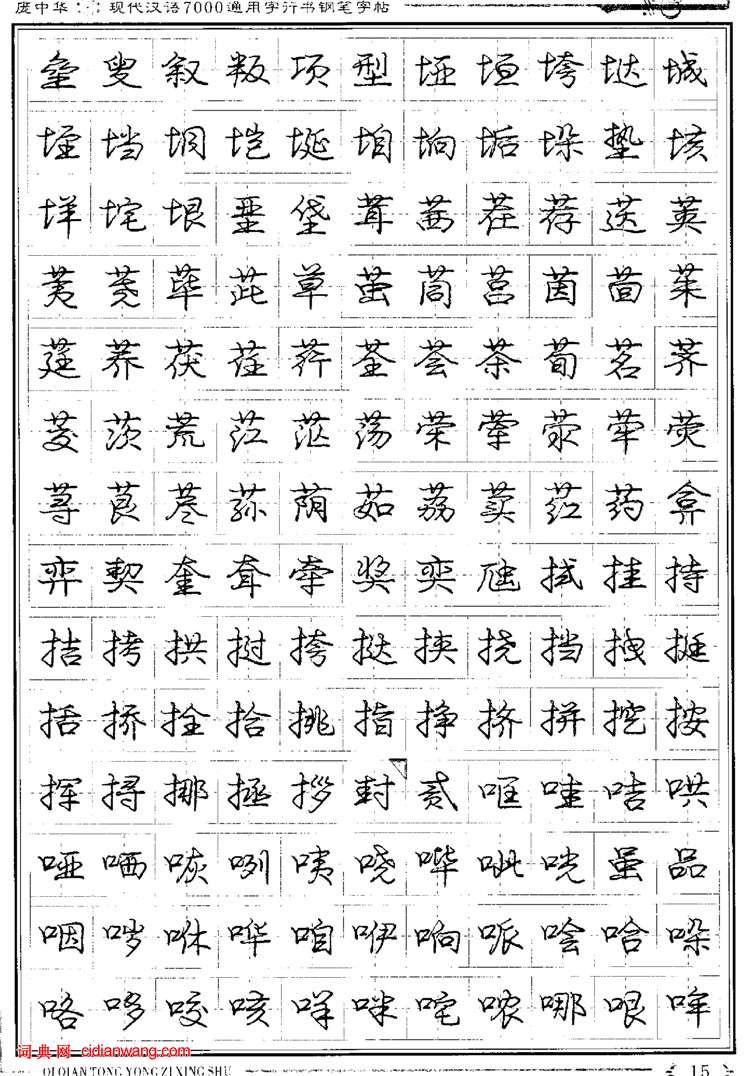 庞中华:现代汉语7000通用字行书钢笔字帖
垒叟叙叛项型垭垣垮垯城
垤垱垌垲埏垍垧垢垛垫垓
垟垞垠垩垡茸茜茬荐荙荚
荑荛荜茈草茧茼莒茵茴茱
莛荞茯荏荇荃荟茶荀茗荠
茭茨荒茳茫荡荣荤荥荦荧
荨茛荩荪荫茹荔荬荭药弇
弈契奎耷牵奖奕拭挂持
拮拷拱挝挎挞挟挠挡拽挺
括挢拴拾挑指挣挤拼挖按
挥挦挪拯拶封贰哐哇咭哄
哑哂咴咧咦哓哔呲咣虽品
咽哕咻哗咱咿响哌哙哈哚
咯哆咬咳咩咪咤哝哪哏哞
词典网 - cidianwang.com
QI QIAN TONG YONG ZI XING SHU
15